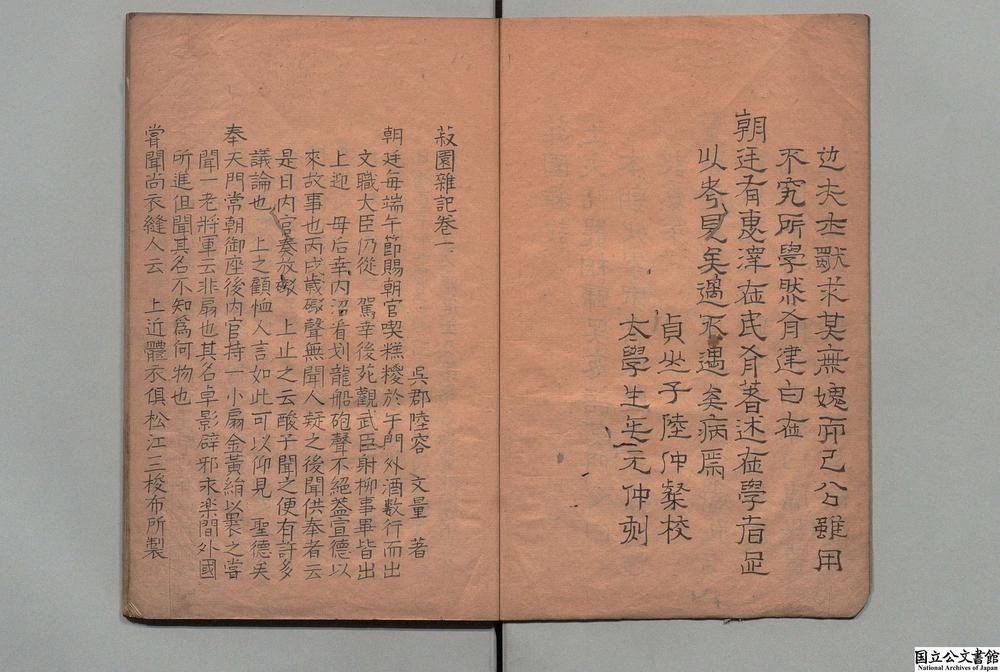 边夫士獸求其無媿而已公雖用
不究所學然有建白在
朝廷有惠澤在民有著述在學者足
以考見矣遇不遇奚病焉
貞山子陸仲粲校
太學生毛元仲刻
菽園雜記卷一
吳郡陸容 文量 著
朝廷每端午節賜朝官喫糕糉於午門外酒數行而出
文職大臣仍從 駕幸後苑觀武臣射柳事畢皆出
上迎 母后幸內沼看划龍船砲聲不絕蓋宣德以
來故事也丙戌歲砲聲無聞人疑之後聞供奉者云
是日內官奏放砲 上止之云酸子聞之便有許多
議論也 上之顧恤人言如此可以仰見 聖德矣
奉天門常朝御座後內官持一小扇金黃絹以裹之嘗
聞一老將軍云非扇也其名卓影辟邪永樂間外國
所進但聞其名不知為何物也
嘗聞尚衣縫人云 上近體衣俱松江三梭布所製
国立公文書館
National Archives of Japan